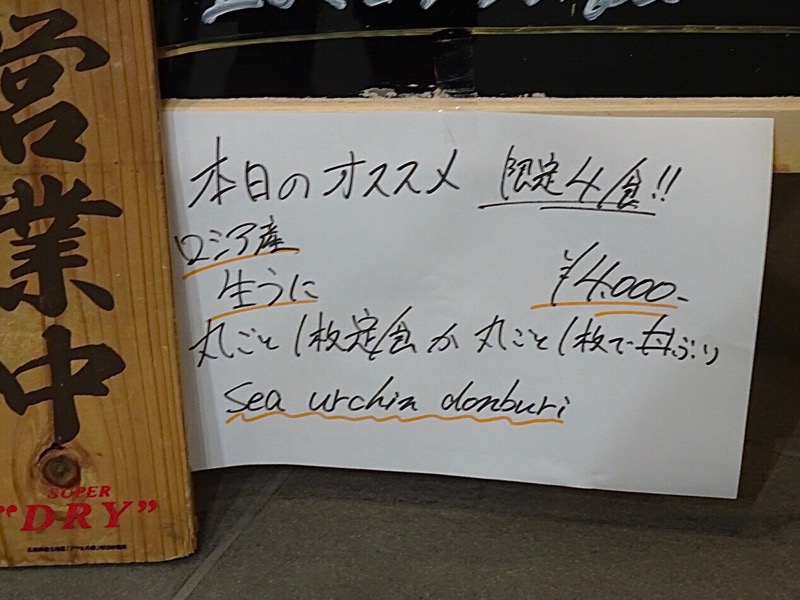 営業中
SUPER
"DRY"
本日のオススメ 限定4食!!
ロシア産
生うに ¥4,000-
丸ごと1枚定食か丸ごと1枚で丼ぶり
sea urchin donburi